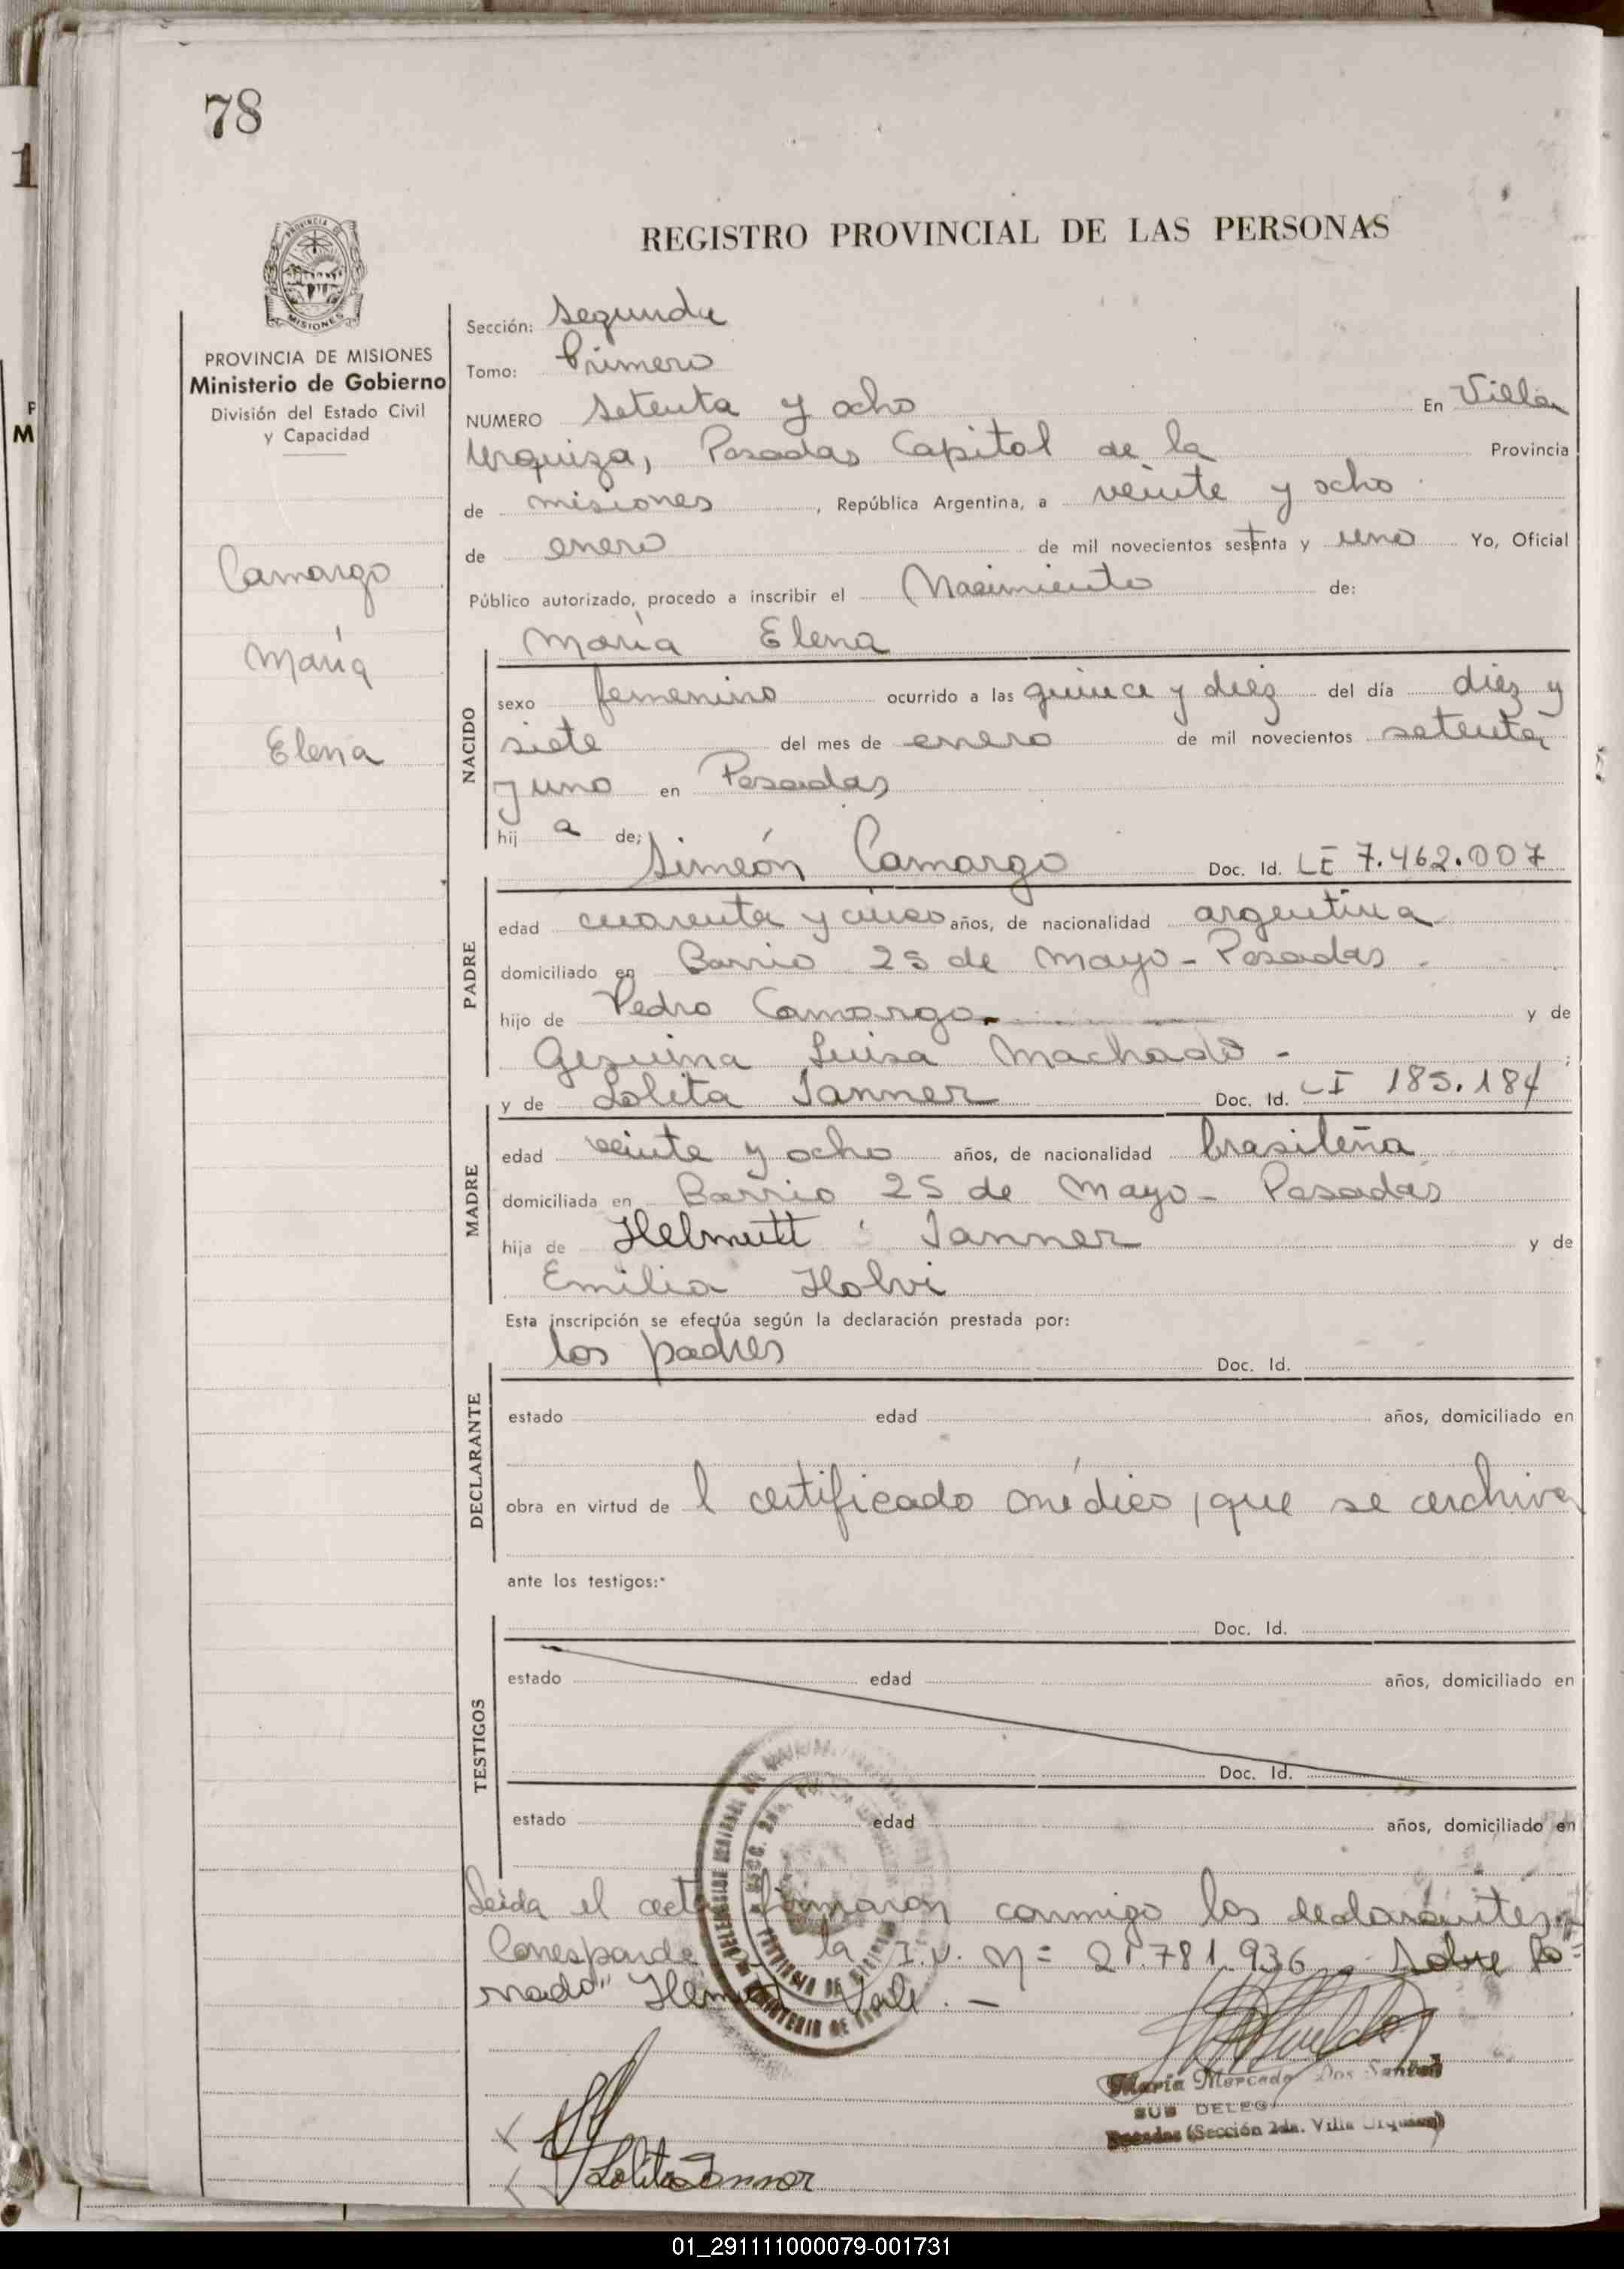 78
REGISTRO PROVINCIAL DE LAS PERSONAS
PROVINCIA DE
MISIONES
PROVINCIA DE MISIONES
Ministerio de Gobierno
División del Estado Civil
y Capacidad
Camargo
María
Elena
Sección: Segunda
Tomo: Primero
NUMERO setenta y ocho En Villa
Urquiza, Posadas Capital de la Provincia
de misiones, República Argentina, a veinte y ocho
de enero de mil novecientos setenta y uno Yo, Oficial
Público autorizado, procedo a inscribir el Nacimiento de:
María Elena
NACIDO
sexo femenino ocurrido a las quince y diez del día diez y
siete del mes de enero de mil novecientos setenta
y uno en Posadas
hij a de;
Simeón Camargo Doc. Id. LE 7.462.007
PADRE
edad cuarenta y cinco años, de nacionalidad argentina
domiciliado en Barrio 25 de Mayo - Posadas
hijo de Pedro Camargo y de
Gesuina Luisa Machado - ;
y de Lolita Tanner Doc. Id. CI 185.184
MADRE
edad veinte y ocho años, de nacionalidad brasileña
domiciliada en Barrio 25 de Mayo - Posadas
hija de Helmutt Tanner y de
Emilia Holvi
Esta inscripción se efectúa según la declaración prestada por:
los padres Doc. Id.
DECLARANTE
estado edad años, domiciliado en
obra en virtud de l certificado médico, que se archiva
ante los testigos:
Doc. Id.
TESTIGOS
estado edad años, domiciliado en
Doc. Id.
estado edad años, domiciliado en
Leída el acta firmaron conmigo los declarantes
Corresponde la I.U. N= 21.781.936 - Sobre Ro=
Vale. -
María Mercado Dos Santos
SUB DELEG
Posadas (Sección 2da. Villa Urquiza)
Lolita Tanner
01_291111000079-001731